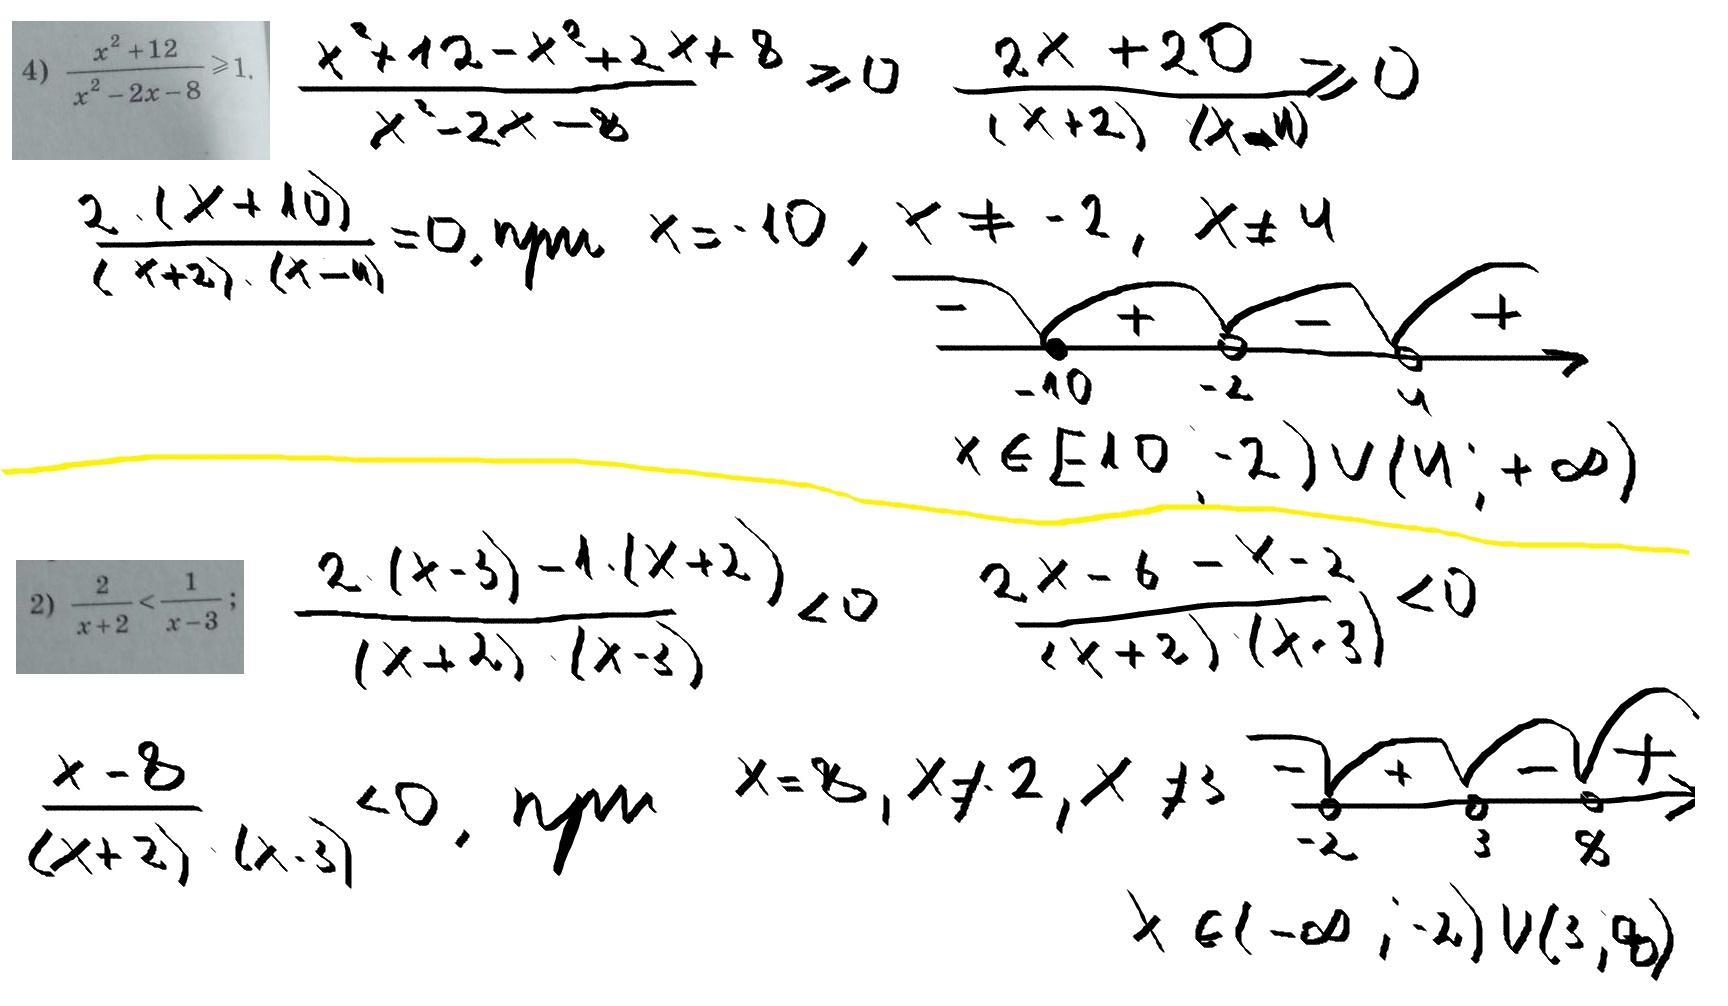 4) (x² + 12)/(x² − 2x − 8) ⩾ 1. (x² + 12 − x² + 2x + 8)/(x² − 2x − 8) ⩾ 0 (2x + 20)/((x+2) (x−4)) ⩾ 0
(2·(x+10))/((x+2)·(x−4)) = 0, при x = -10, x ≠ -2, x ≠ 4
− + − +
-10 -2 4
x ∈ [10; -2) ∪ (4; +∞)
2) 2/(x+2) < 1/(x−3); (2·(x-3) − 1·(x+2))/((x+2)·(x-3)) < 0 (2x − 6 − x − 2)/((x+2)·(x-3)) < 0
(x − 8)/((x+2)·(x-3)) < 0, при x = 8, x ≠ -2, x ≠ 3
− + − +
-2 3 8
x ∈ (-∞; -2) ∪ (3; 8)